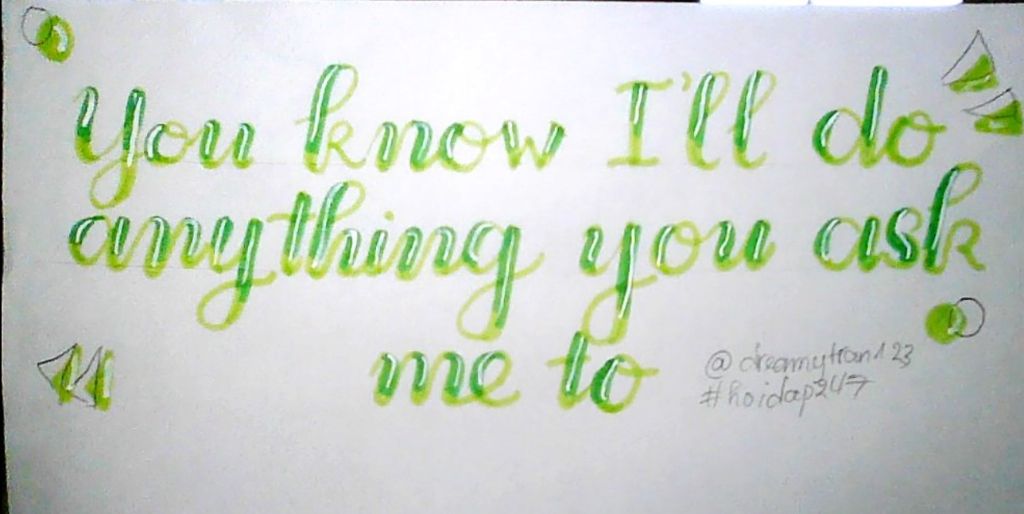 You know I'll do
anything you ask
me to
@dreamytran123
#hoidap247